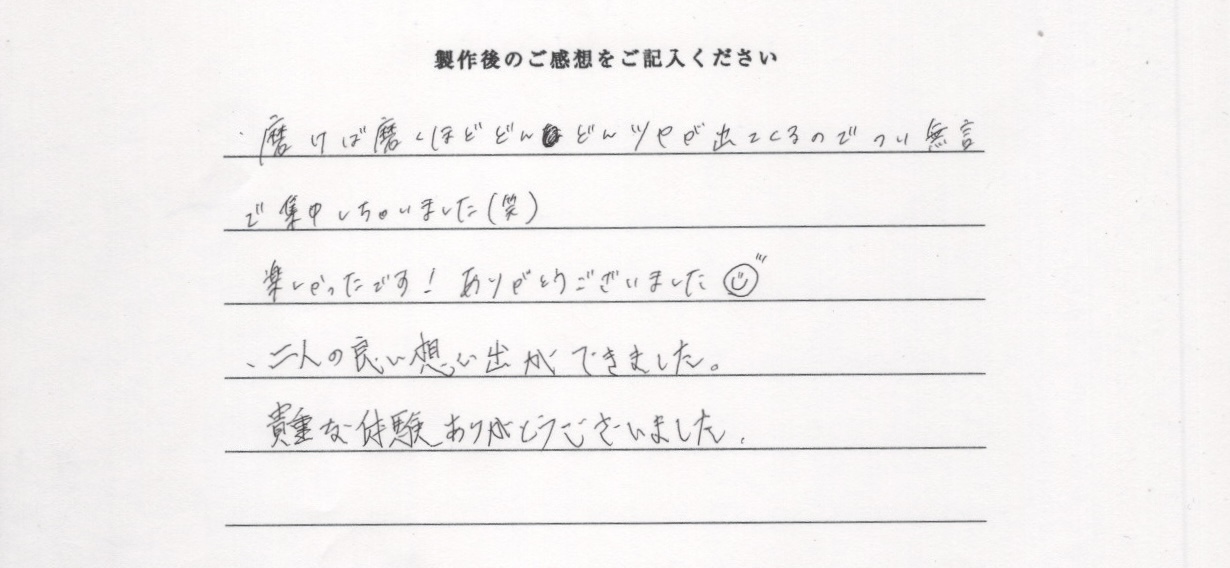 製作後のご感想をご記入ください
・磨けば磨くほどどんどんツヤが出てくるのでつい無言
で集中しちゃいました(笑)
楽しかったです！ありがとうございました
・二人の良い想い出ができました。
貴重な体験ありがとうございました.